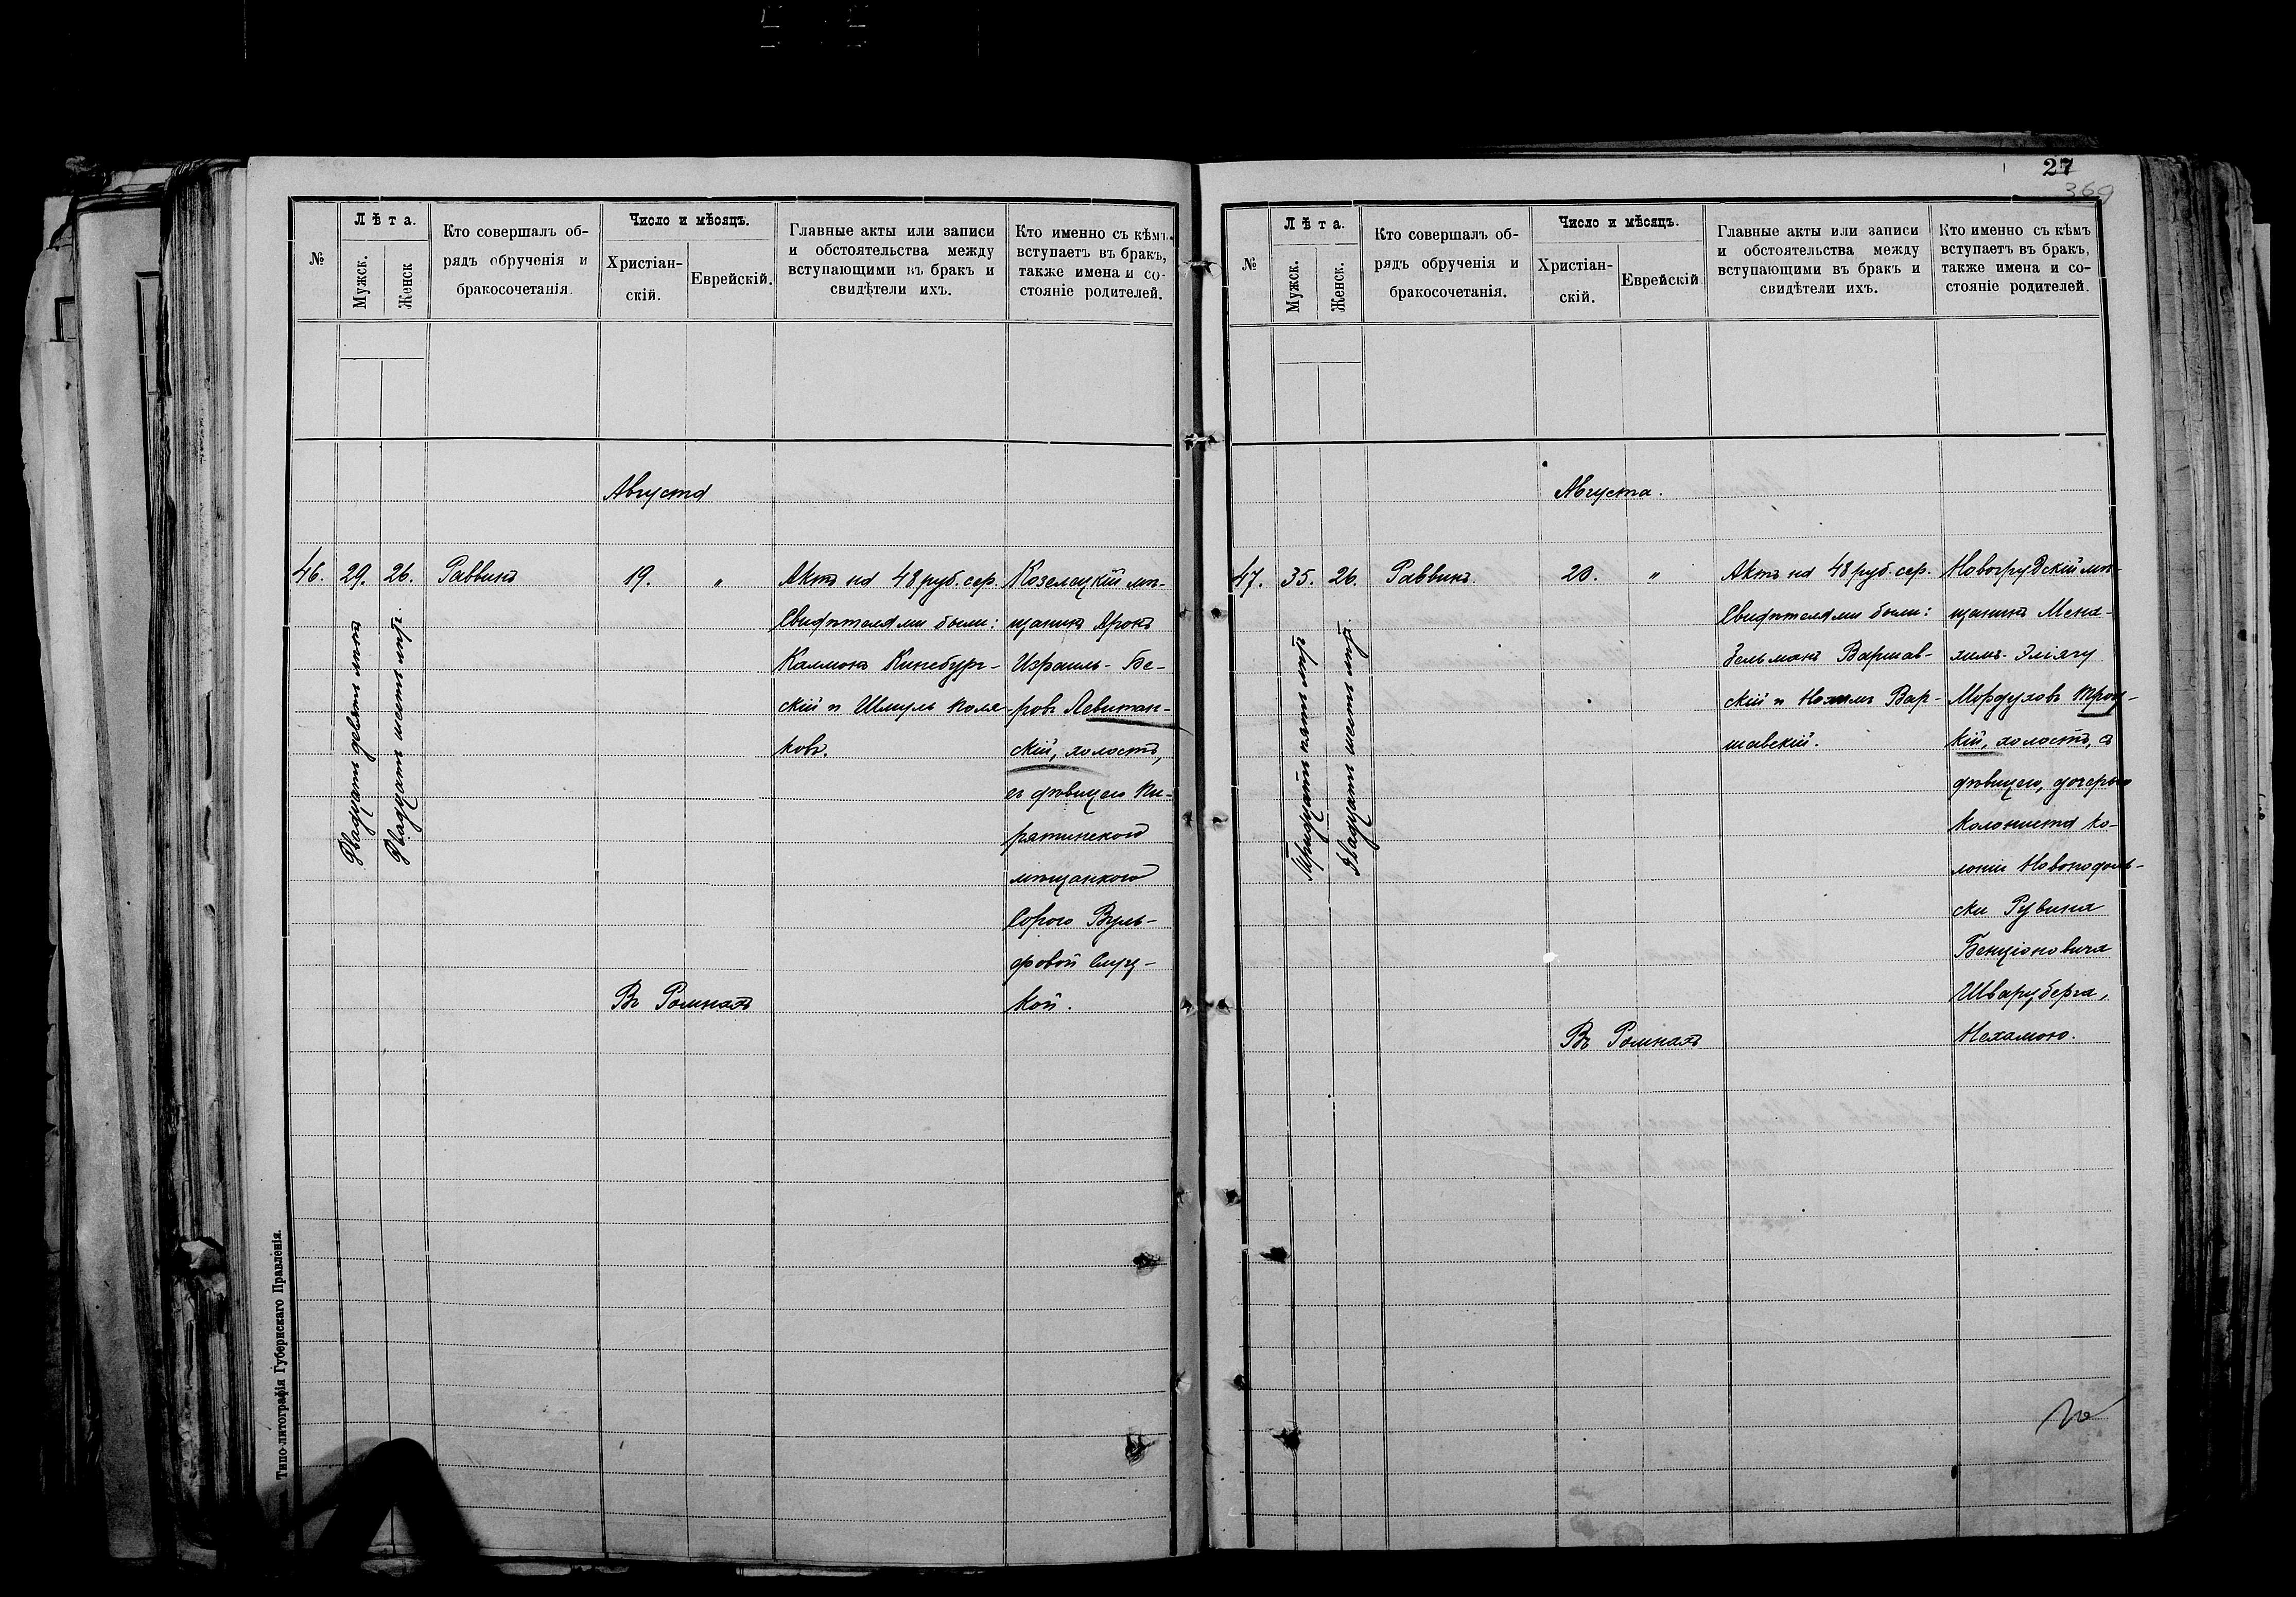 27
369
№
Лѣта.
Мужск.
Женск
Кто совершалъ об-
рядъ обрученія и
бракосочетанія.
Число и мѣсяцъ.
Христіан-
скій.
Еврейскій.
Главные акты или записи
и обстоятельства между
вступающими въ бракъ и
свидѣтели ихъ.
Кто именно съ кѣмъ
вступаетъ въ бракъ,
также имена и со-
стояніе родителей.
Августа
46.
29.
Двадцать девять лѣтъ
26.
Двадцать шесть лѣтъ.
Раввинъ
19.
"
Въ Ромнахъ
Актъ на 48 руб. сер.
Свидѣтелями были:
Калмонъ Кинебург-
скій и Шмуль Поля-
ковъ.
Козелецкій мѣ-
щанинъ Аронъ
Израиль-Бе-
ровъ Левитан-
скій, холостъ,
съ дѣвицею Пи-
рятинскою
мѣщанкою
Сорою Вуль-
фовой Слуц-
кой.
Типо-литографія Губернскаго Правленія.
№
Лѣта.
Мужск.
Женск.
Кто совершалъ об-
рядъ обрученія и
бракосочетанія.
Число и мѣсяцъ.
Христіан-
скій.
Еврейскій
Главные акты или записи
и обстоятельства между
вступающими въ бракъ и
свидѣтели ихъ.
Кто именно съ кѣмъ
вступаетъ въ бракъ,
также имена и со-
стояніе родителей.
Августа.
47.
35.
Тридцать пять лѣтъ
26.
Двадцать шесть лѣтъ.
Раввинъ.
20.
"
Въ Ромнахъ
Актъ на 48 руб. сер.
Свидѣтелями были:
Зельманъ Варшав-
скій и Нохимъ Вар-
шавскій.
Новогрудскій мѣ-
щанинъ Мена-
химъ-Эліягу
Мордуховъ Троц-
кій, холостъ, съ
дѣвицею, дочерью
колониста ко-
лоніи Новоподоль-
ски Рувина
Бенціоновича
Шварцберга,
Нехамою.